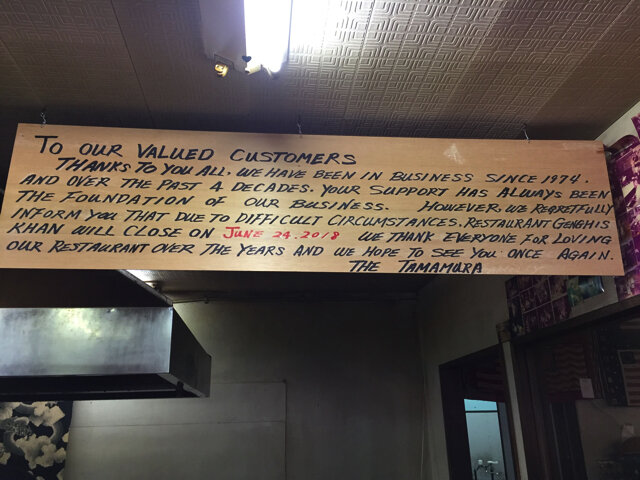 TO OUR VALUED CUSTOMERS
THANKS TO YOU ALL, WE HAVE BEEN IN BUSINESS SINCE 1974.
AND OVER THE PAST 4 DECADES. YOUR SUPPORT HAS ALWAYS BEEN
THE FOUNDATION OF OUR BUSINESS. HOWEVER, WE REGRETFULLY
INFORM YOU THAT DUE TO DIFFICULT CIRCUMSTANCES. RESTAURANT GENGHIS
KHAN WILL CLOSE ON JUNE 24.2018 WE THANK EVERYONE FOR LOVING
OUR RESTAURANT OVER THE YEARS AND WE HOPE TO SEE YOU ONCE AGAIN.
THE TAMAMURA